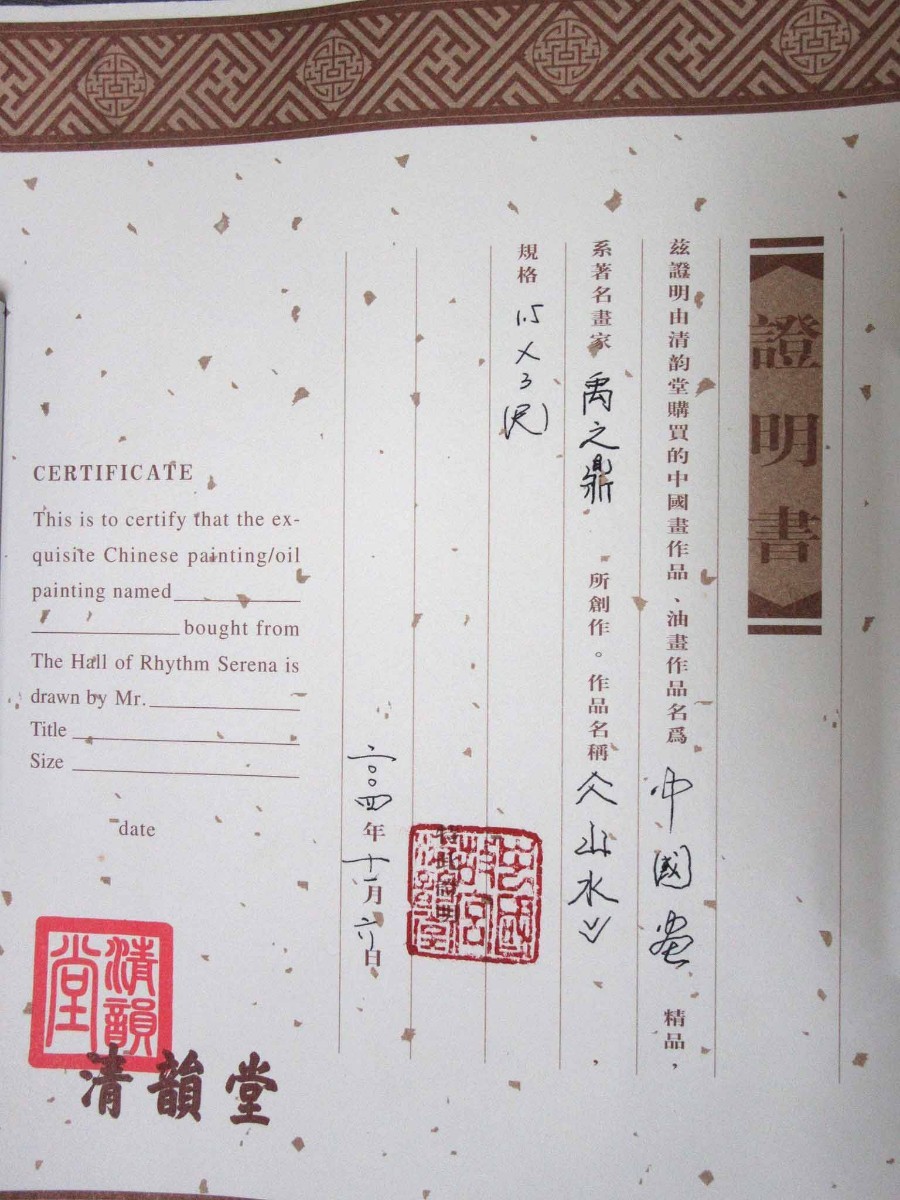 證明書
茲證明由清韵堂購買的中國畫作品、油畫作品名爲 中國畫 精品，
系著名畫家 禹之鼎 所創作。作品名稱《山水》，
規格 1.5×3(尺)
特此證明
中國故宮清韻堂
二〇〇四年十一月六日
CERTIFICATE
This is to certify that the ex-
quisite Chinese painting/oil
painting named
bought from
The Hall of Rhythm Serena is
drawn by Mr.
Title
Size
date
清韻堂
清韻堂